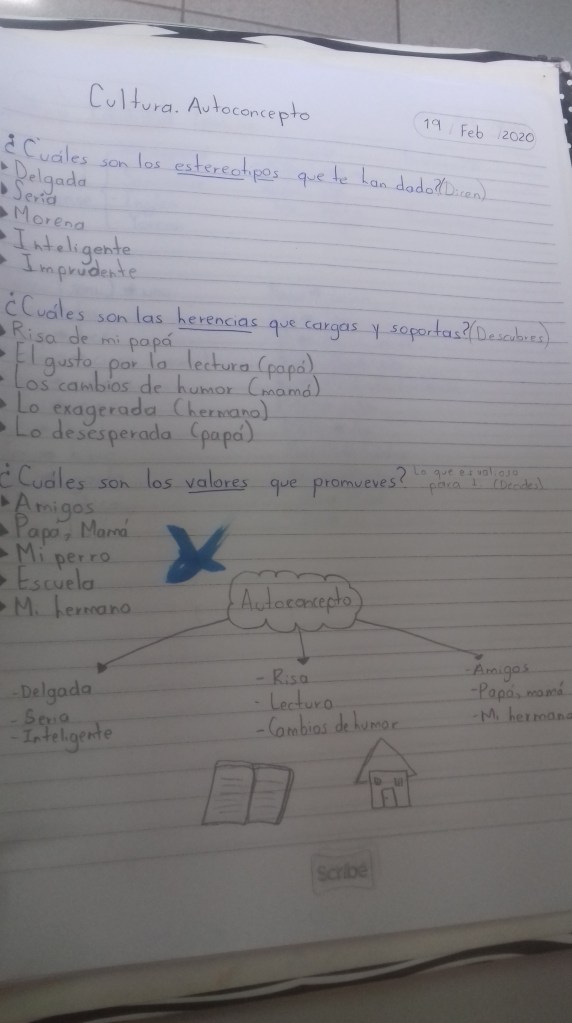 Cultura. Autoconcepto
19 Feb 2020
¿Cuáles son los estereotipos que te han dado? (Dicen)
Delgada
Seria
Morena
Inteligente
Imprudente
¿Cuáles son las herencias que cargas y soportas? (Descubres)
Risa de mi papá
El gusto por la lectura (papá)
Los cambios de humor (mamá)
Lo exagerada (hermano)
Lo desesperada (papá)
¿Cuáles son los valores que promueves? Lo que es valioso
para (Decides)
Amigos
Papá, Mamá
Mi perro
Escuela
Mi hermano
Autoconcepto
- Delgada
- Seria
- Inteligente
- Risa
- Lectura
- Cambios de humor
- Amigos
- Papá, mamá
- Mi hermano
Scribe